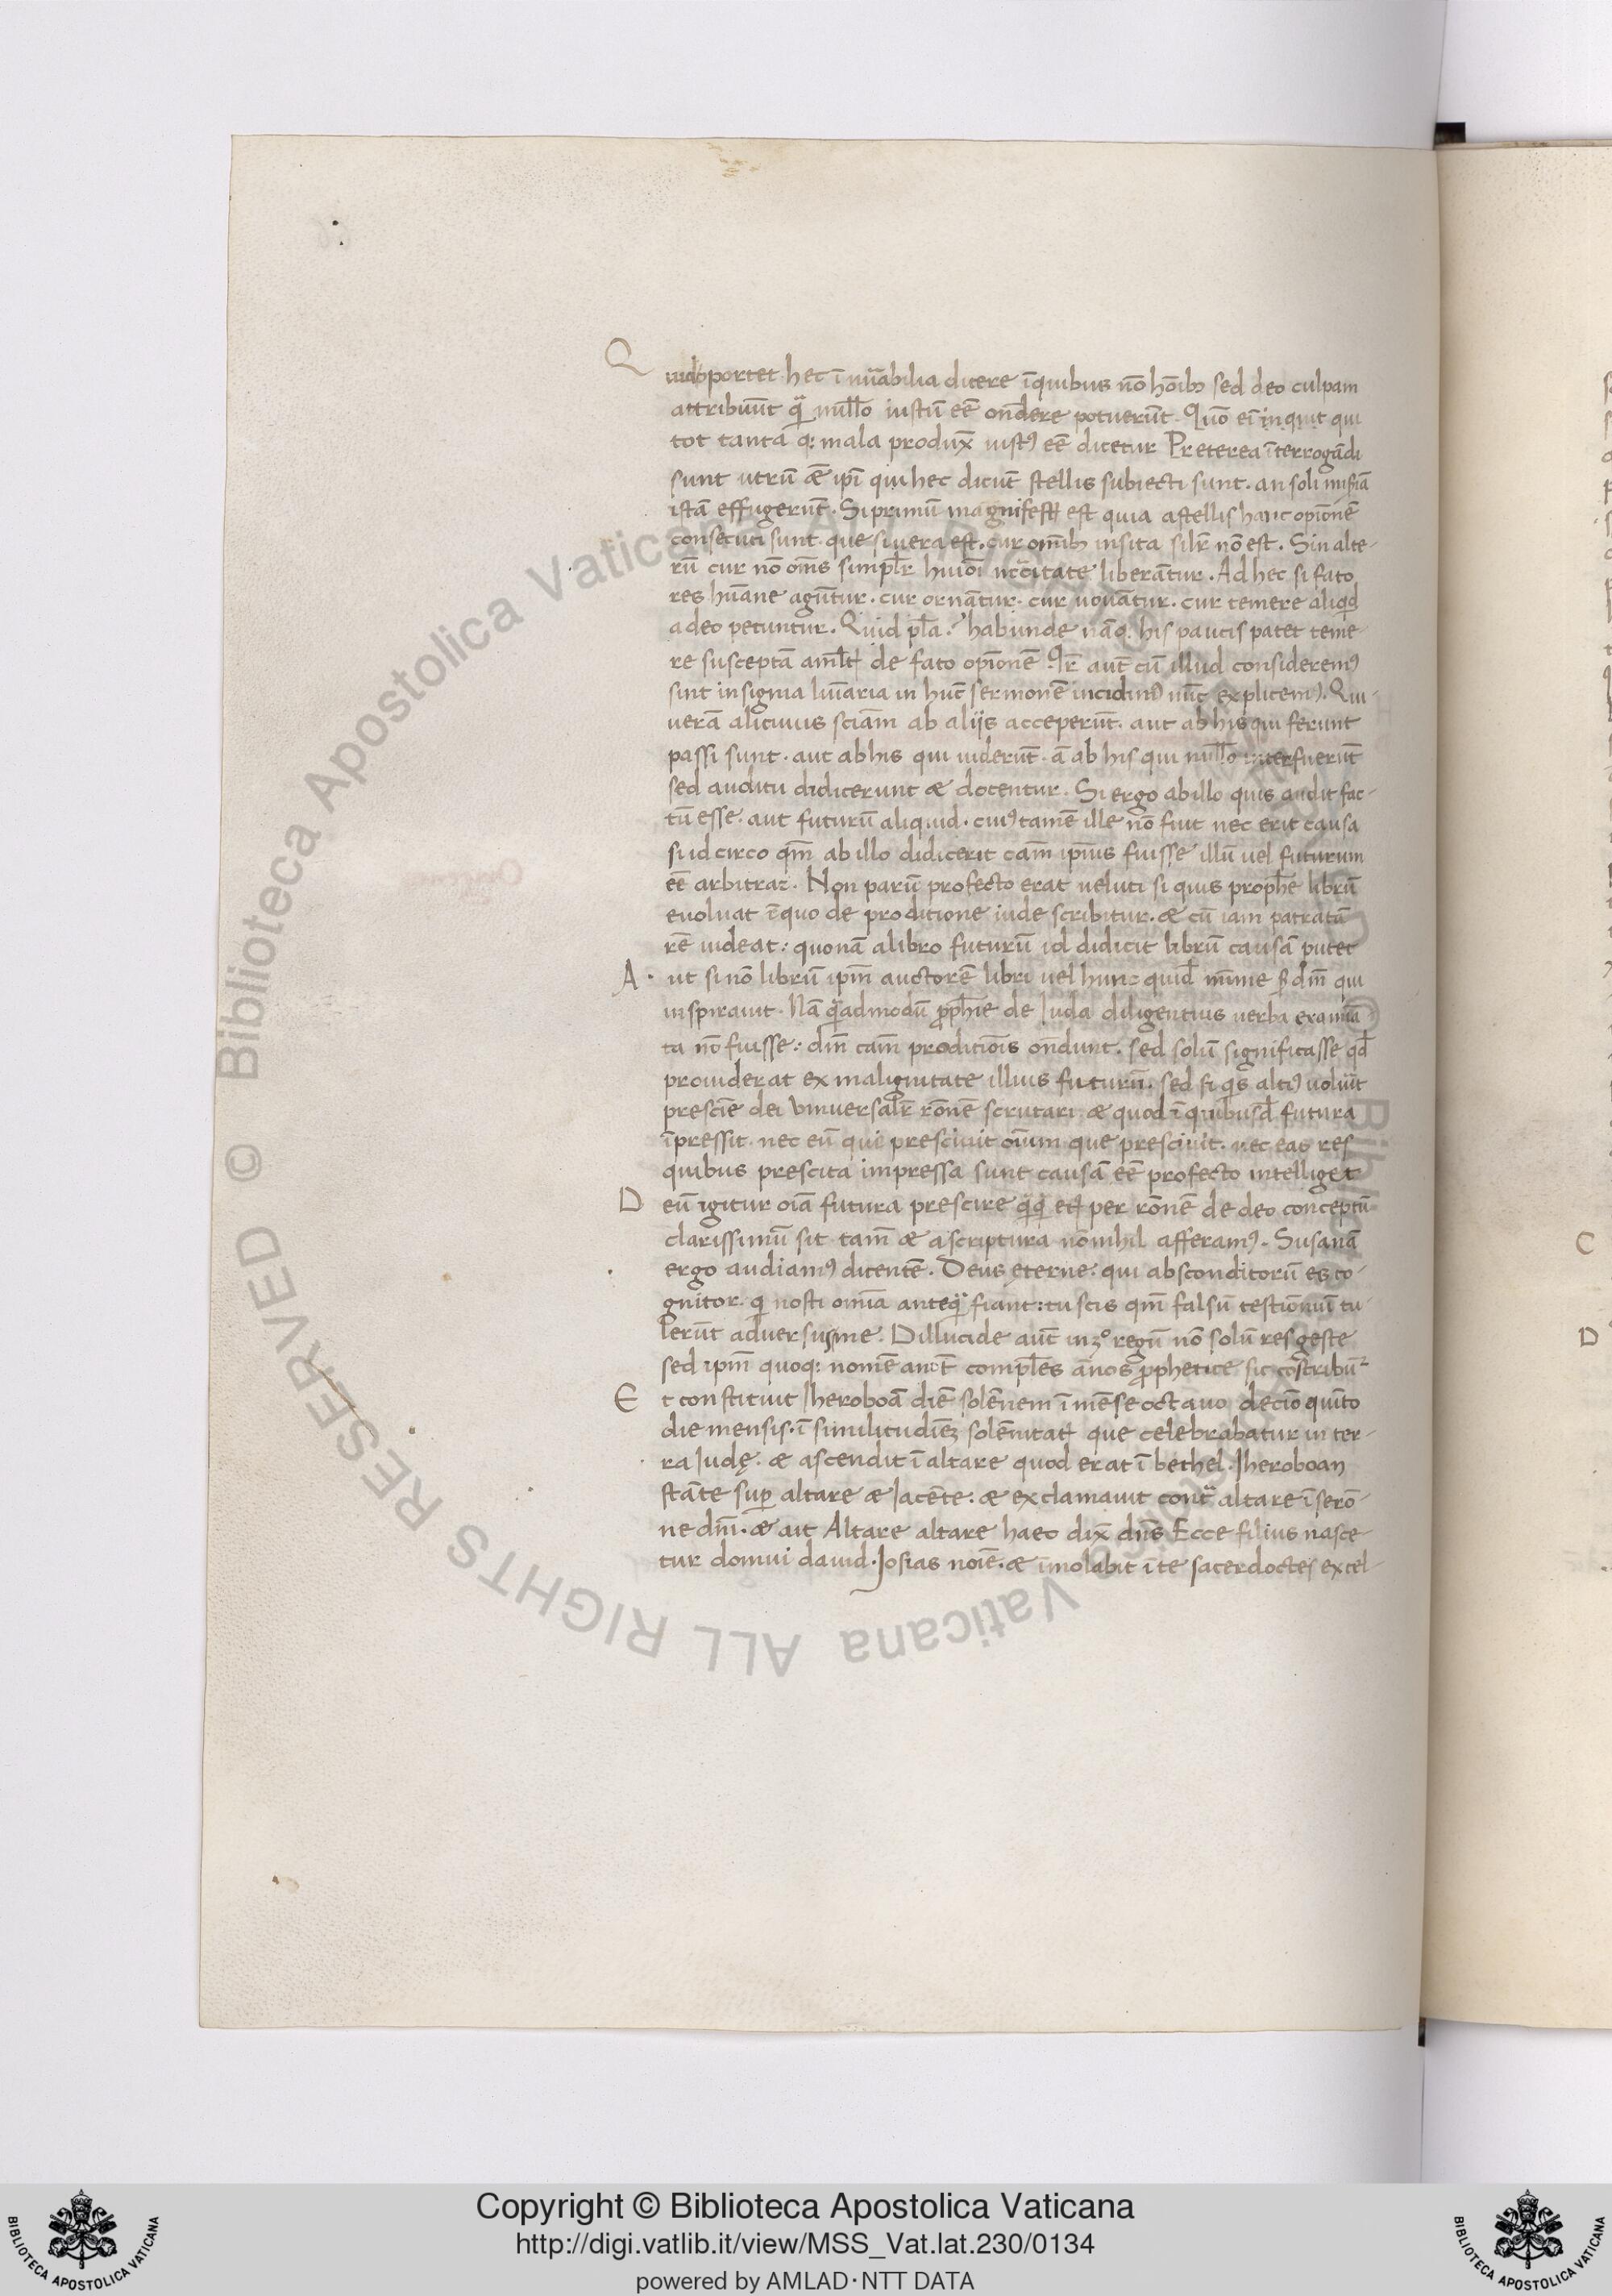 Q uid oportet hec īnūabilia dicere īquibus nō hōibꝫ sed deo culpam
attribuūt q̄ nullo iustū eē ondere potuerūt. Quō eī inquit qui
tot tanta qꝫ mala produx̄ iustꝰ eē dicetur Preterea īterrogādi
sunt utrū ǣ ip̄i qui hec dicūt stellis subiecti sunt. an soli
istā effugerūt. Si primū est quia astellis hanc opionē
consecuti sunt. que si uera est. cur omībꝫ insita silr̄ nō est. Sin alte-
rū cur nō om̄s simplr̄ huiōi nccītate liberātur. Ad hec si fato
res hūane agūtur. cur ornātur. cur uouātur. cur temere aliqd
adeo petuntur. Quid pl̄a? habunde nāqꝫ his paucis patet teme-
re susceptā de fato opionē Qr̄ aut̄ cū illud consideremꝰ
sint insignia luīaria in hūc sermonē incidimꝰ nūc explicemꝰ. Qui-
uerā alicuius sciam̄ ab alijs acceperūt. aut ab his qui ferunt
passi sunt. aut abhis qui uiderūt. ā ab his qui null̄o interfuerūt
sed auditu didicerunt æ docentur. Si ergo abillo quis audit fac-
tū esse. aut futurū aliquid. cuiꝰ tamē ille nō fuit nec erit causa
si id circo qm̄ ab illo didicerit cam̄ ip̄ius fuisse illū uel futurum
eē arbitraꝛ. Non parū profecto erat ueluti si quis proph̄e librū
euoluat īquo de proditione iude scribitur. æ cū iam patratā
rē uideat: quonā alibro futurū id didicit librū causā putet
A. ut si nō librū ip̄m auctorē libri uel hunc quid̄ mīme s; dm̄ qui
inspirauit. Nā q̄admodū proph̄ie de Iuda diligentius uerba examīa-
ta nō fuisse: dm̄ cam̄ proditiōis ondunt. sed solū significasse qd̄
prouiderat ex malignitate illius futurū. sed si qs altiꝰ uoluīt
prescīe dei vniuersalr̄ rōnē scrutari æ quod ī quibusd̄ futura
īpressit. nec eū que presciuit oīum que presciuit. nec eas res
quibus prescita impressa sunt causā eē profecto intelliget
D eū igitur oīa futura prescire per rōnē de deo conceptū
clarissimū sit tam̄ æ ascriptura nōnihil afferamꝰ. Susanā
ergo audiamꝰ dicentē. Deus ęterne. qui absconditorū es co-
gnitor. q̇ nosti omīa anteq̄ fiant: tu scis qm̄ falsū testioniū tu-
lerūt aduersus me. Dillucide aut̄ in3º regū nō solū res geste
sed ip̄m quoqꝫ nomē compl̄es ānos prophetice sic cōscribūꝛ
E t constituit Iheroboā diē solēnem ī mēse octauo decīo quīto
die mensis. ī similitudīeꝫ solēnitat̄ que celebrabatur in ter-
ra Iudę. æ ascendit ī altare quod erat ī bethel. Iheroboan
stāte sup̱ altare æ Iacēte. æ exclamauit cont̄ altare ī serō-
ne dm̄. æ ait Altare altare haec dix̄ dn̄s Ecce filius nasce-
tur domui dauid. Iosias noīe. æ īmolabit ī te sacerdoctes excel-
C
D
© Biblioteca Apostolica Vaticana ALL RIGHTS RESERVED
Copyright © Biblioteca Apostolica Vaticana
http://digi.vatlib.it/view/MSS_Vat.lat.230/0134
powered by AMLAD·NTT DATA
BIBLIOTECA APOSTOLICA VATICANA
BIBLIOTECA APOSTOLICA VATICANA